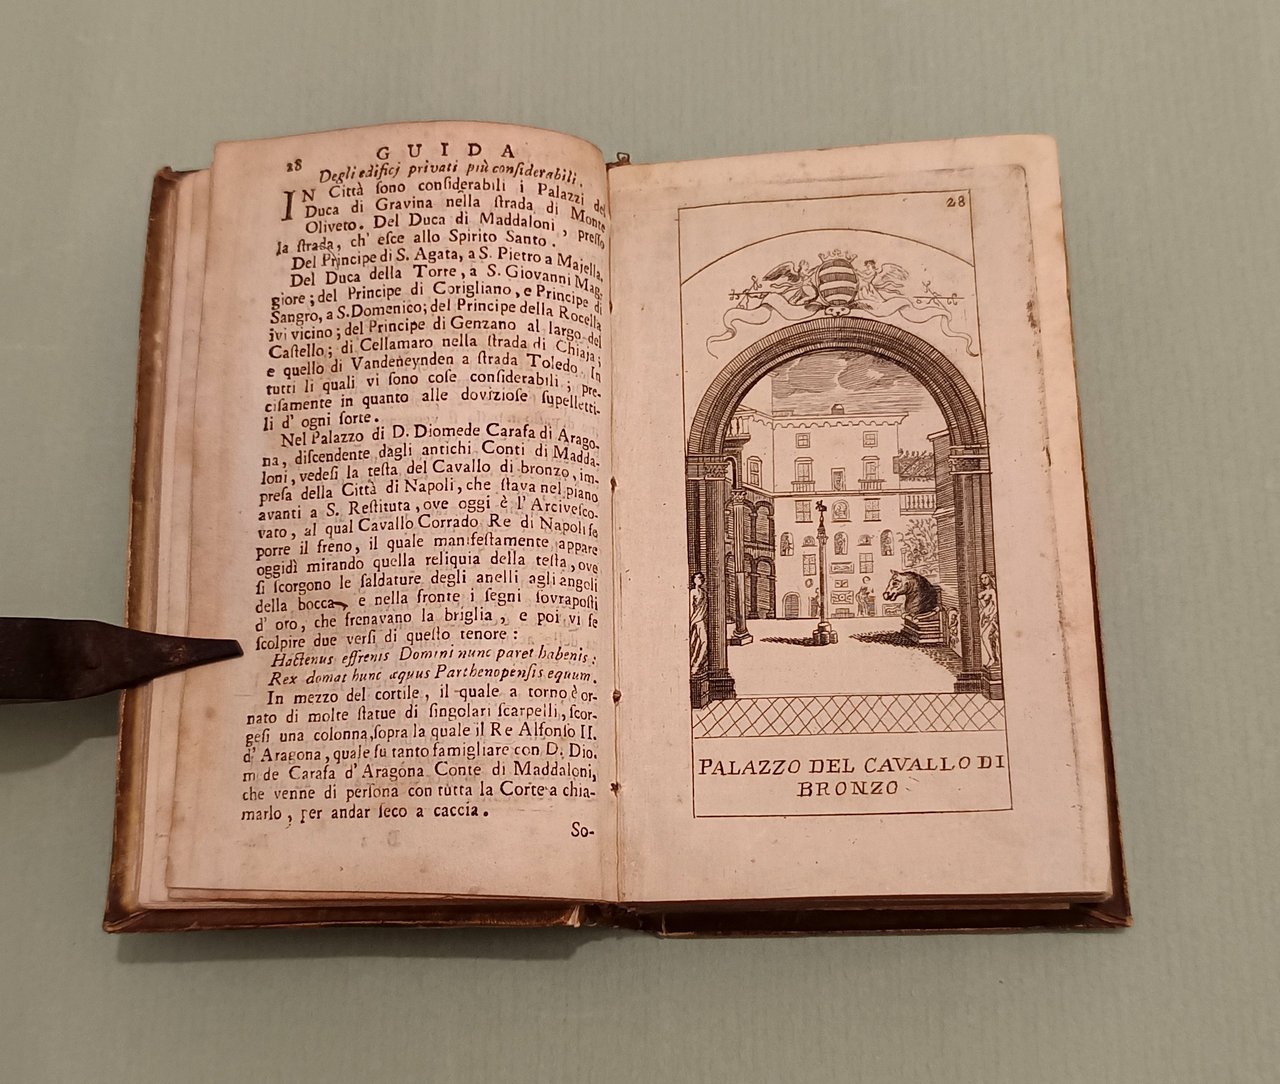 28
GUIDA
Degli edificj privati più conſiderabili.
IN Città ſono conſiderabili i Palazzi del
Duca di Gravina nella ſtrada di Monte
Oliveto. Del Duca di Maddaloni, preſſo
la ſtrada, ch' eſce allo Spirito Santo.
Del Principe di S. Agata, a S. Pietro a Majella.
Del Duca della Torre, a S. Giovanni Mag-
giore; del Principe di Corigliano, e Principe di
Sangro, a S. Domenico; del Principe della Rocella
ivi vicino; del Principe di Genzano al largo del
Caſtello; di Cellamaro nella ſtrada di Chiaja;
e quello di Vandeneynden a ſtrada Toledo. In
tutti li quali vi ſono coſe conſiderabili; pre-
ciſamente in quanto alle dovizioſe ſupelletti-
li d' ogni ſorte.
Nel Palazzo di D. Diomede Carafa di Arago-
na, diſcendente dagli antichi Conti di Madda-
loni, vedeſi la teſta del Cavallo di bronzo, im-
preſa della Città di Napoli, che ſtava nel piano
avanti a S. Reſtituta, ove oggi è l' Arciveſco-
vato, al qual Cavallo Corrado Re di Napoli fe
porre il freno, il quale manifeſtamente appare
oggidì mirando quella reliquia della teſta, ove
ſi ſcorgono le ſaldature degli anelli agli angoli
della bocca, e nella fronte i ſegni ſovrapoſti
d' oro, che frenavano la briglia, e poi vi fe
ſcolpire due verſi di queſto tenore:
Hactenus effrenis Domini nunc paret habenis:
Rex domat hunc æquus Parthenopenſis equum.
In mezzo del cortile, il quale a torno è or-
nato di molte ſtatue di ſingolari ſcarpelli, ſcor-
geſi una colonna, ſopra la quale il Re Alfonſo II.
d' Aragona, quale fu tanto famigliare con D. Dio-
m de Carafa d' Aragona Conte di Maddaloni,
che venne di perſona con tutta la Corte a chia-
marlo, per andar ſeco a caccia.
So-
28
PALAZZO DEL CAVALLO DI
BRONZO